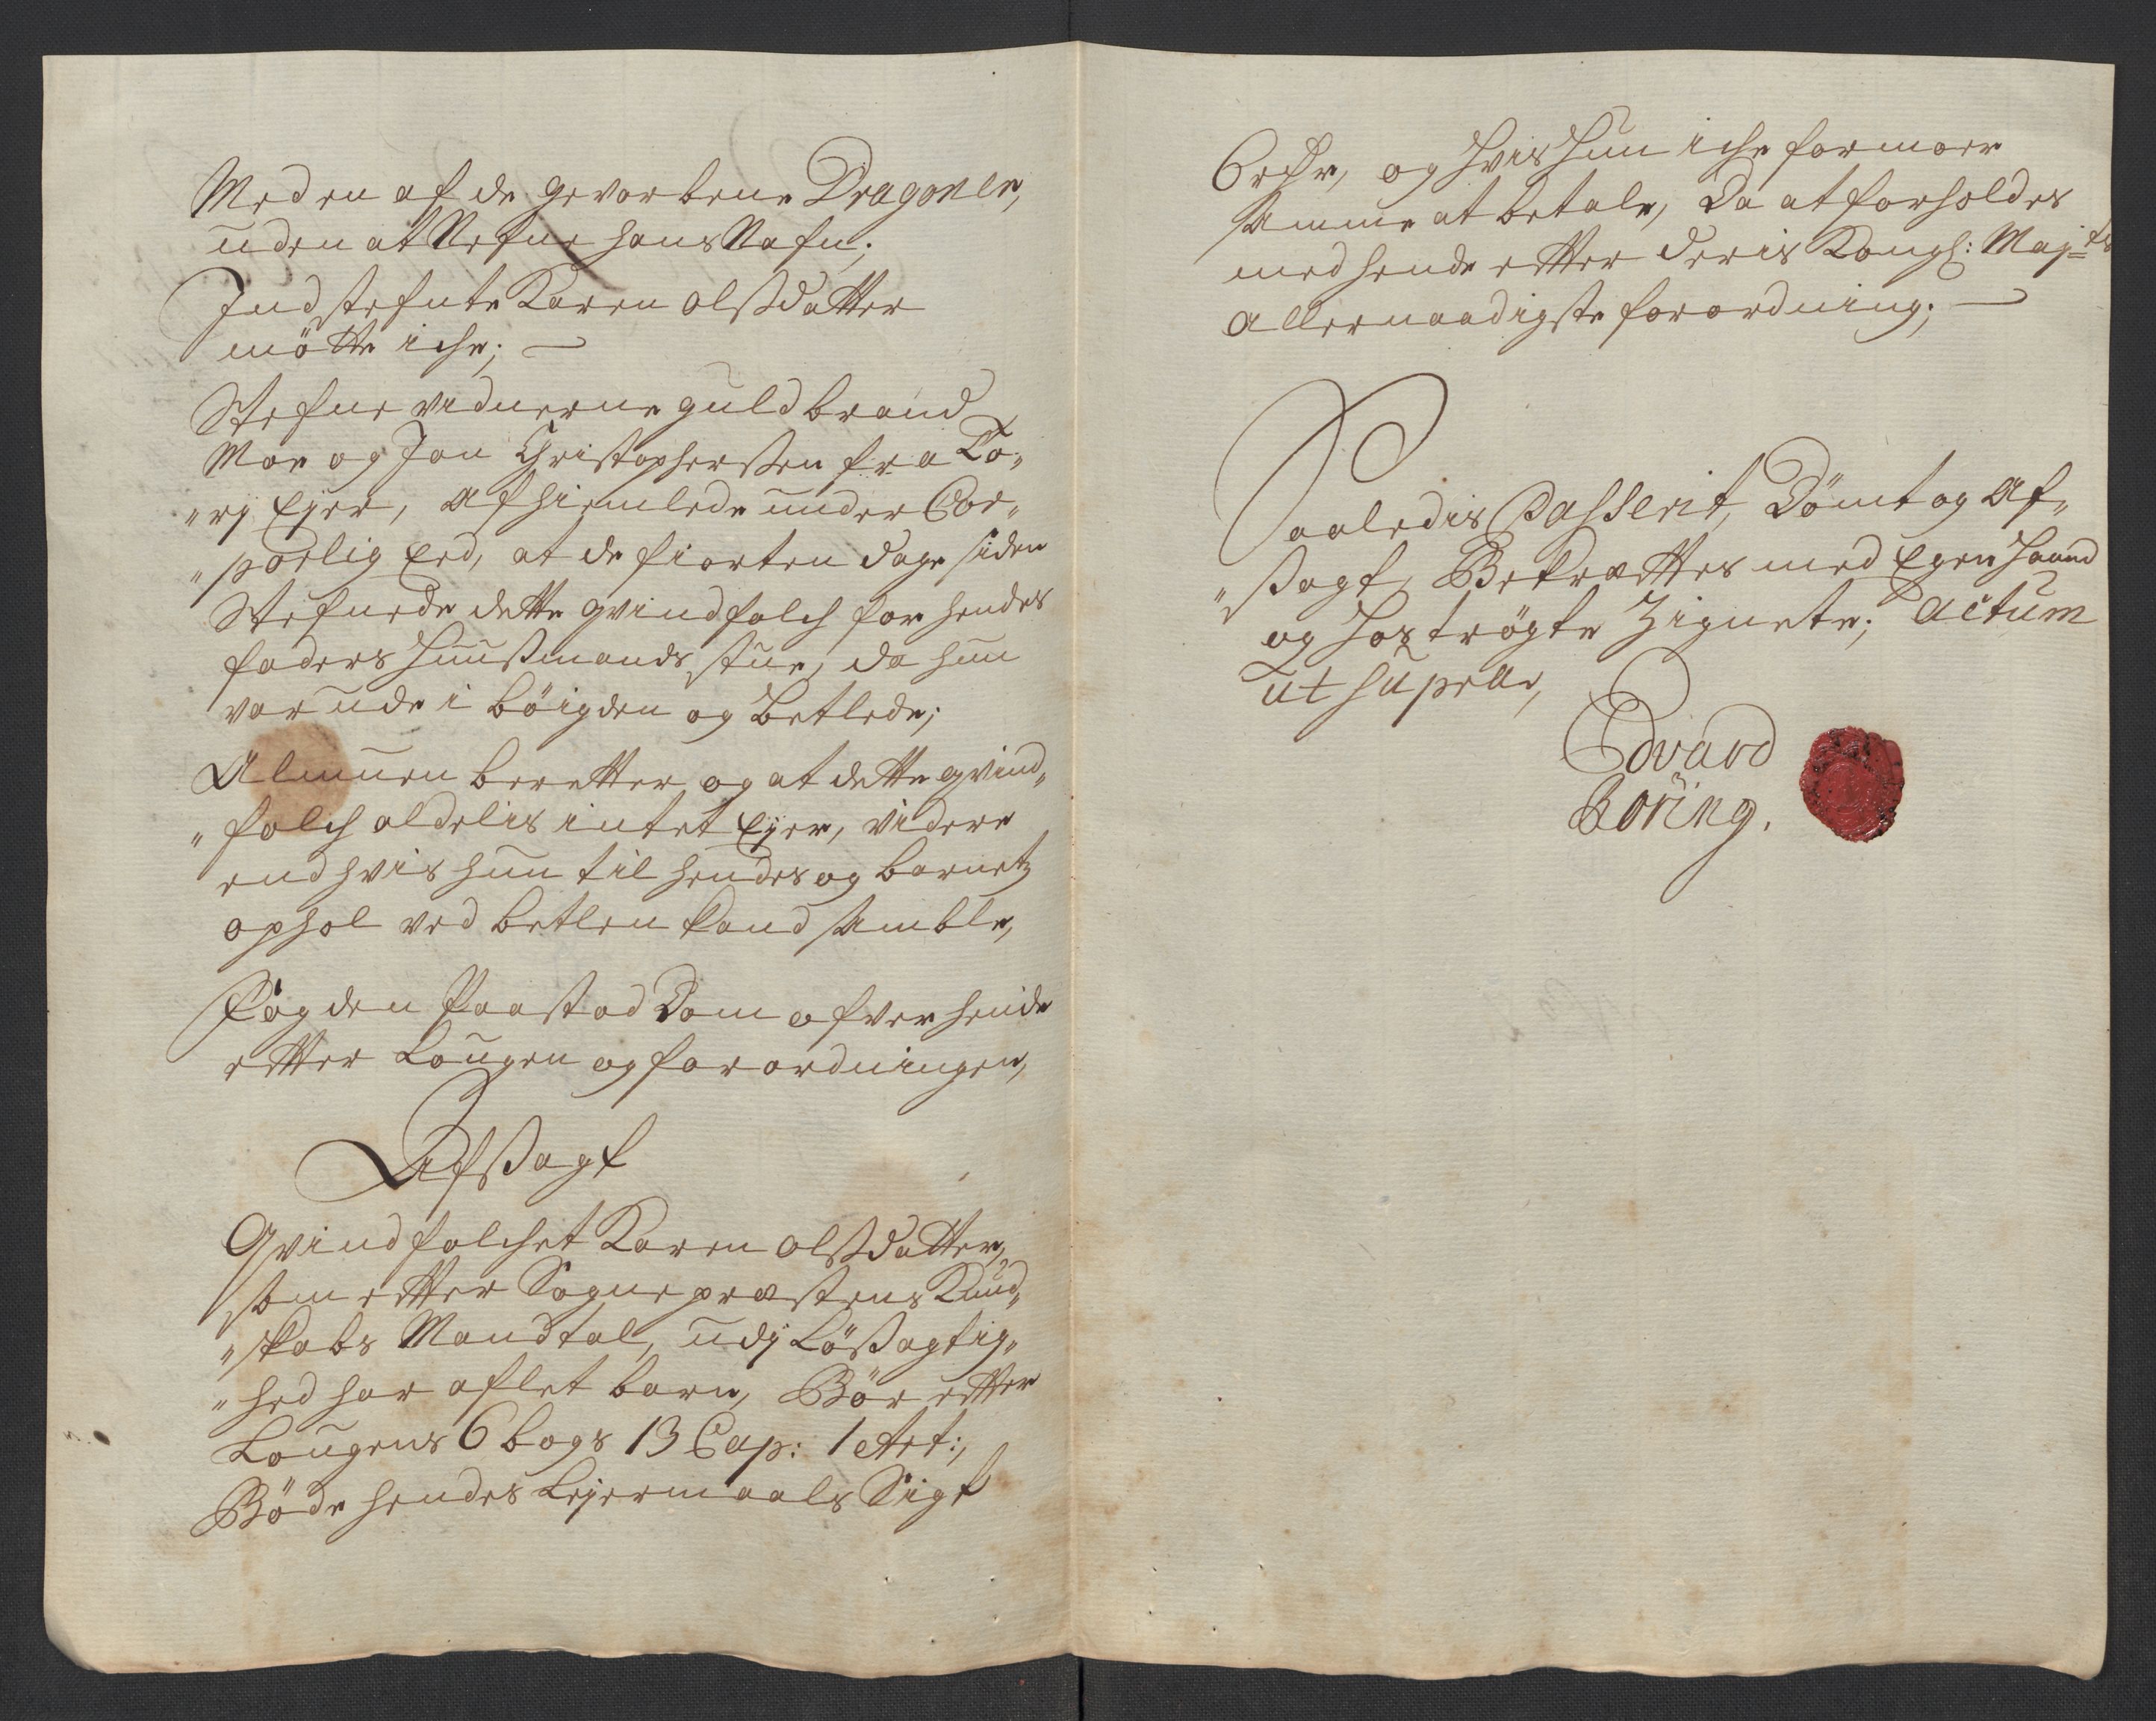 Med en af de gevorbene Dragoner,
uden at Nefne hans Nafn;
Indstefnte Karen olsdatter
mötte iche;
Stefne vidnerne guldbrand
Moe og Jon Christophersen fra
Ejer, afhiemlede under Cor„
„porlig Eed, at de fiorten dage siden
Stefnede dette qvindfolch for hendes
faders huusmands stue, da hun
var ude i böigden og betlede;
Almuen beretter og at dette qvind„
„folch aldelis intet Ejer, videre
end hvis hun til hendes og barnetz
ophol ved betlen kand samble,
Fogden Paastod Dom ofver hende
etter Lougen og forordningen,
Afsagt
Qvindfolchet Karen olsdatter,
som etter Sogneprestens Kund„
„skabs Mandtal, udj Lösagtig„
„hed har aflet barn, Bör etter
Lougens 6 bogs 13 Cap: 1 Art:,
Böde hendes Lejermaals Sigt
6 rdr, og hvis hun iche formaar
samme at betale, Da at forholdes
med hende etter deris Kongl: Maj=ts
allernaadigste forordning;
Saaledis Passerit, Dömt og Af„
„sagt, Bekræfttes med Egen haand
og hoströgte Zignete; Actum
ut supra,
Edvard
Böring.